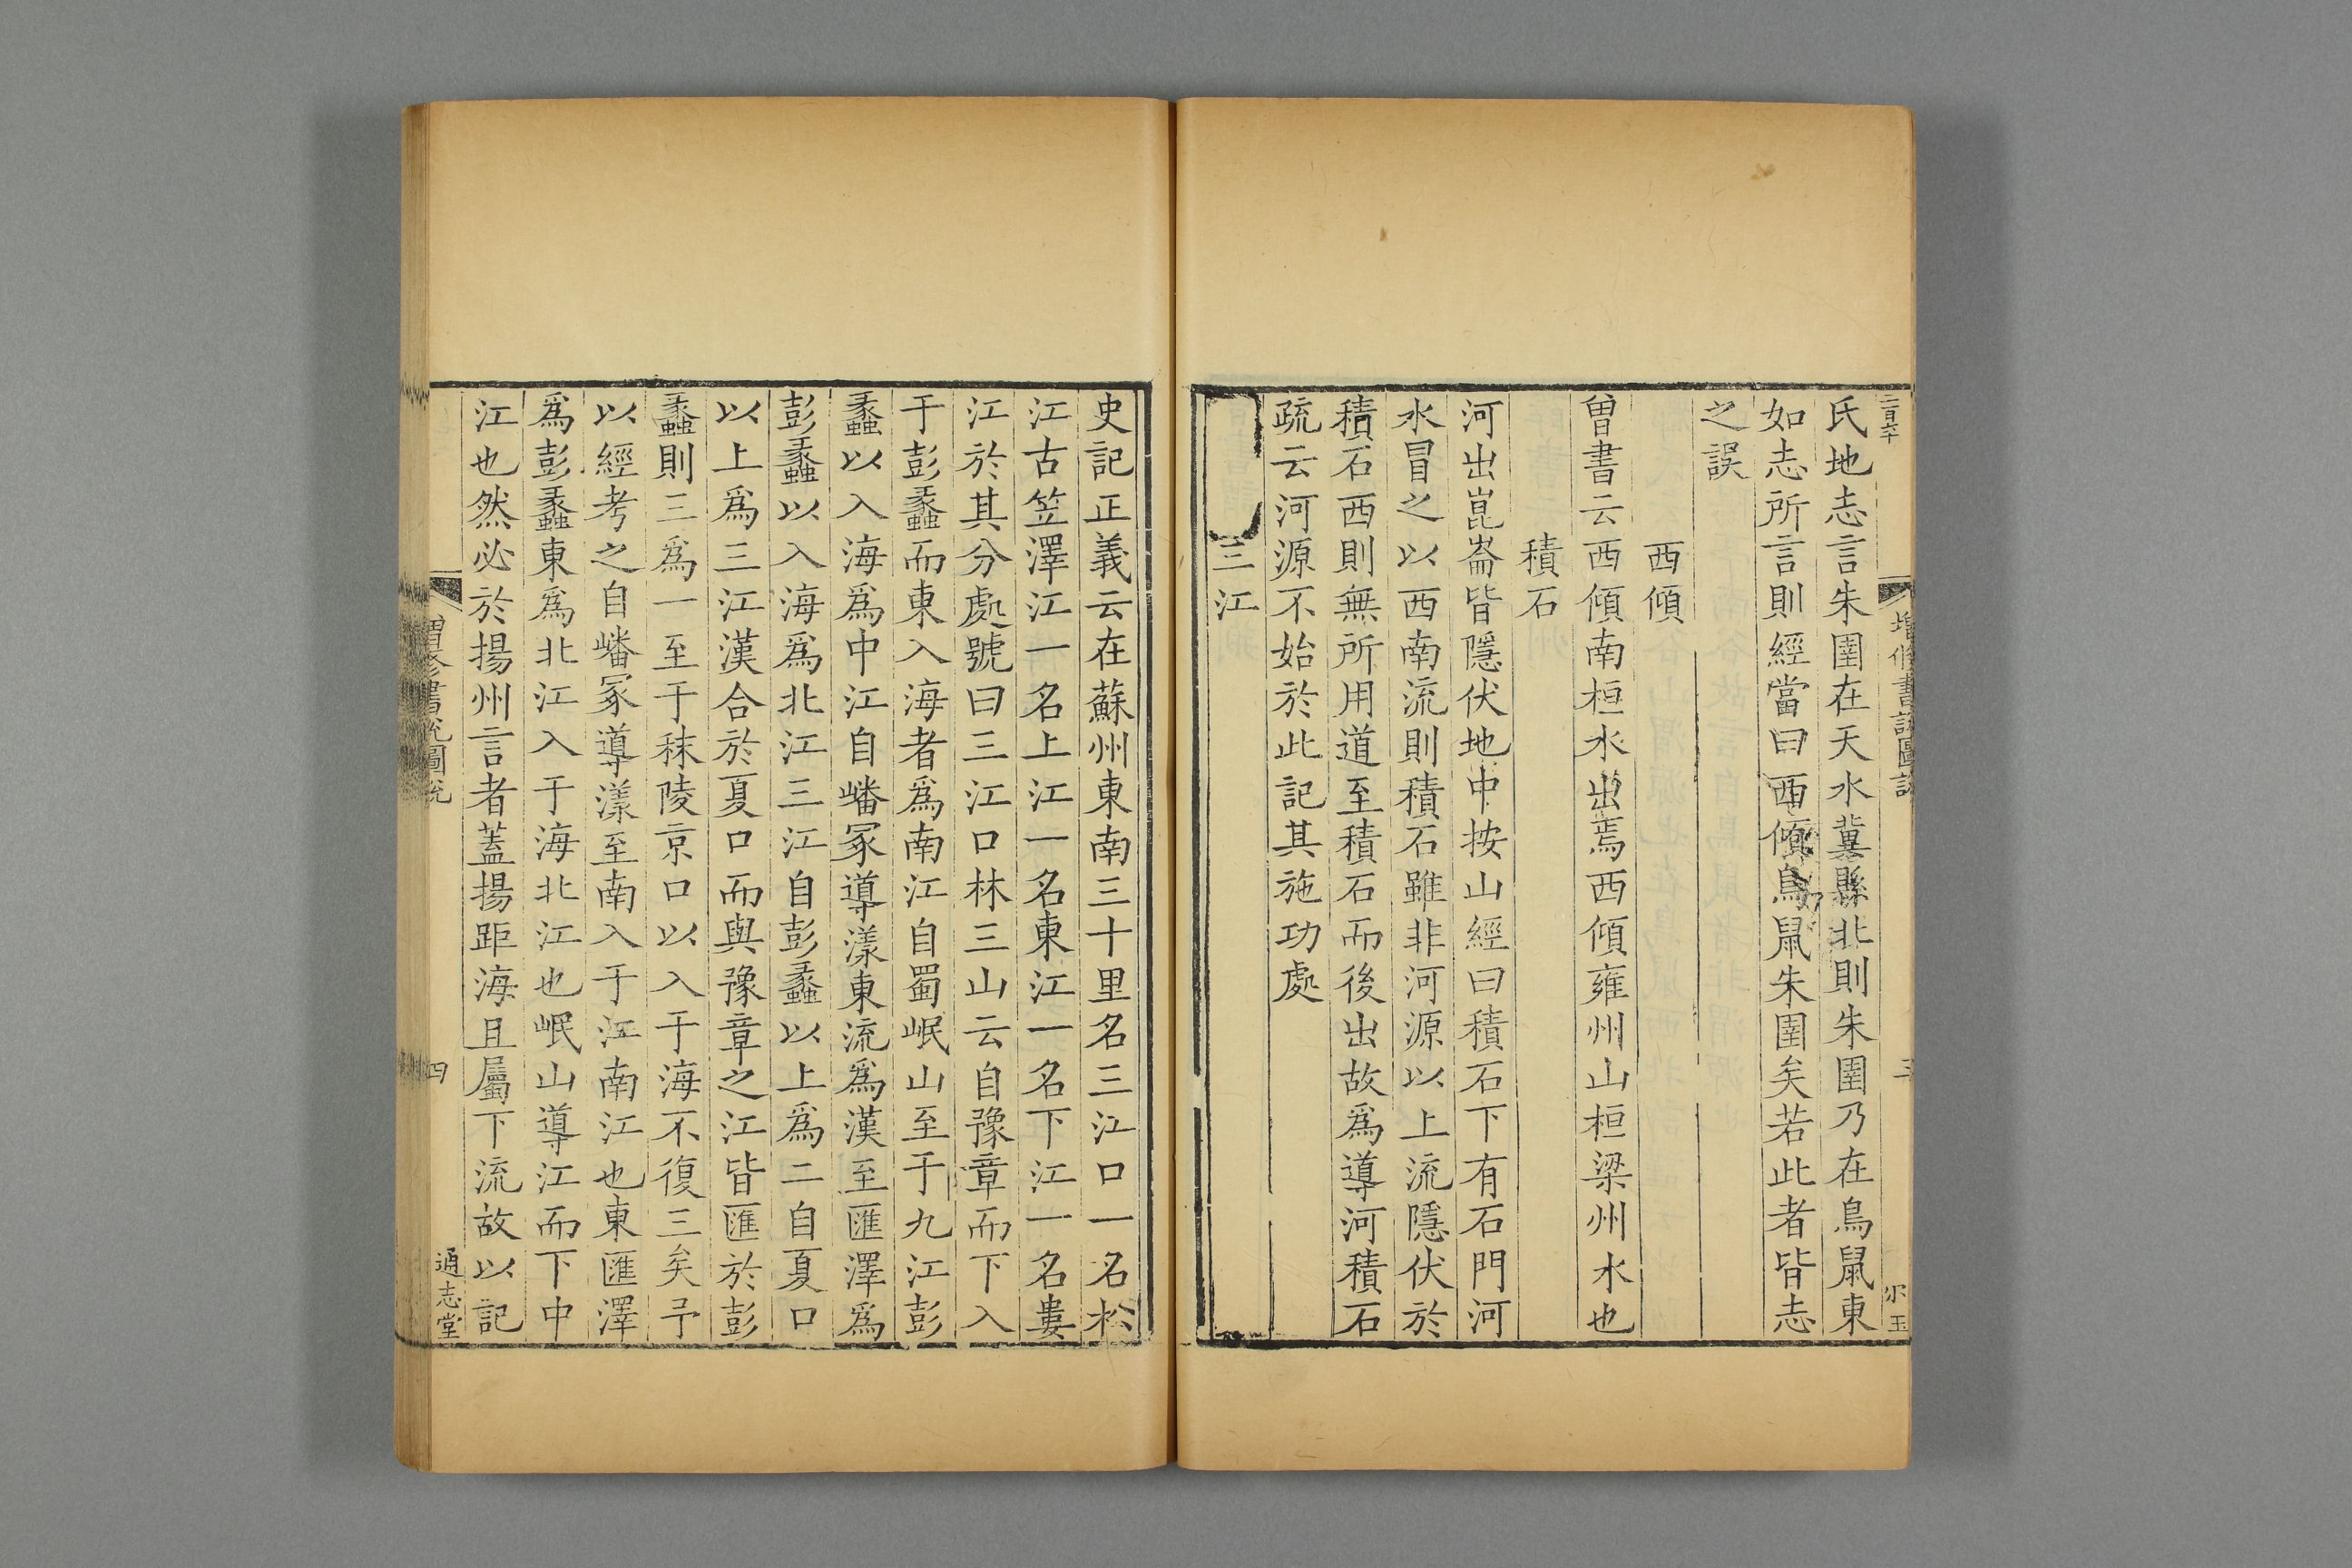 氏地志言朱圉在天水冀縣北則朱圉乃在鳥鼠東
如志所言則經當曰西傾鳥鼠朱圉矣若此者皆志
之誤
西傾
曾書云西傾南桓水出焉西傾雍州山桓梁州水也
積石
河出崑崙皆隱伏地中按山經曰積石下有石門河
水冒之以西南流則積石雖非河源以上流隱伏於
積石西則無所用道至積石而後出故爲導河積石
疏云河源不始於此記其施功處
三江
史記正義云在蘇州東南三十里名三江口一名松
江古笠澤江一名上江一名東江一名下江一名婁
江於其分處號曰三江口林三山云自豫章而下入
于彭蠡而東入海者爲南江自蜀岷山至于九江彭
蠡以入海爲中江自嶓冢導漾東流爲漢至匯澤爲
彭蠡以入海爲北江三江自彭蠡以上爲二自夏口
以上爲三江漢合於夏口而與豫章之江皆匯於彭
蠡則三爲一至于秣陵京口以入于海不復三矣予
以經考之自嶓冢導漾至南入于江南江也東匯澤
爲彭蠡東爲北江入于海北江也岷山導江而下中
江也然必於揚州言者蓋揚距海且屬下流故以記
四
通志堂